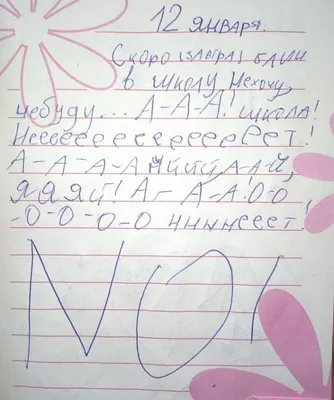 12 января.
Скоро (завтра) блин
в школу Нехочу,
небуду... А-А-А! школа!
Нееееееееееееееет!
А-А-А-А ЙййЙ, А-А-Й,
яаяй! А- А-А! О-О
-О-О-О-О Нннннееет!
NO!